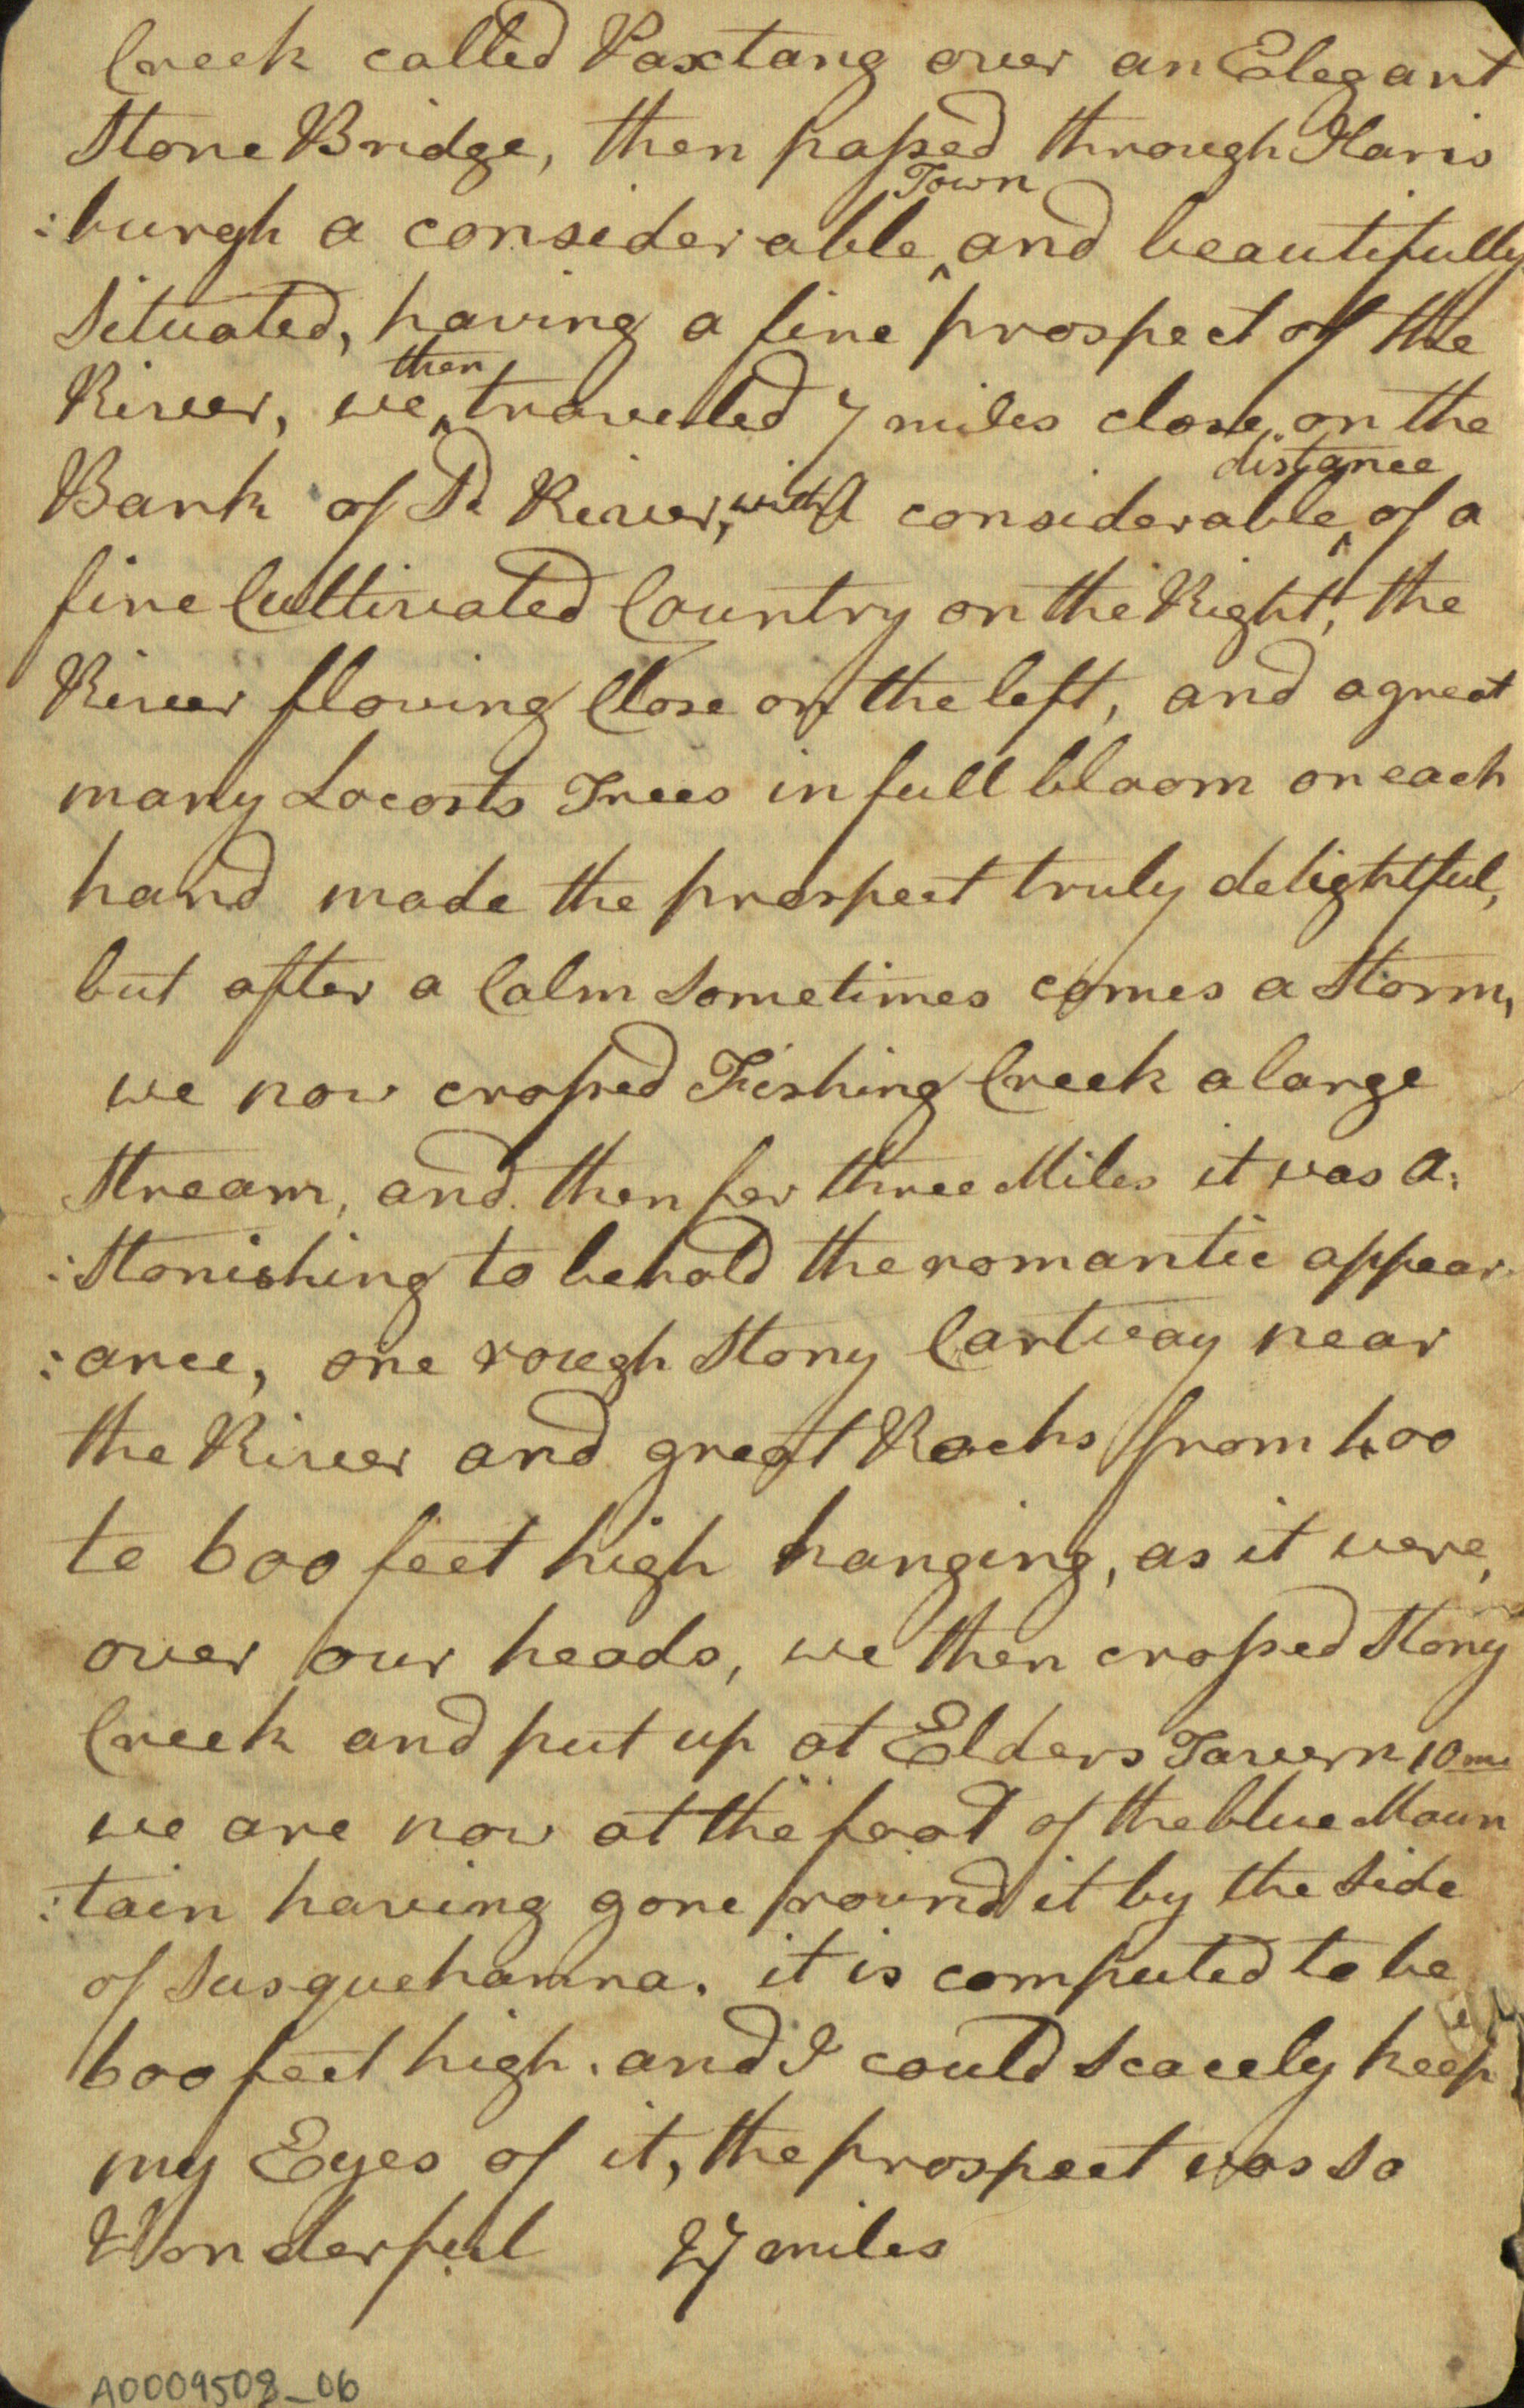 Creek called Paxtang over an Elegant
Stone Bridge, then paſsed through Haris
:burgh a considerable ^Town and beautifully
Situated, having a fine prospect of the
River, we ^then travelled 7 miles close on the
Bank of Sd River, with a considerable ^distance of a
fine Cultivated Country on the Right, the
River flowing Close on the left, and a great
many Locosts Trees in full bloom on each
hand made the prospect truly delightful,
but after a Calm Sometimes comes a Storm,
we now croſsed Fishing Creek a large
Stream, and then for three Miles it was a:
:Stonishing to behold the romantic appear
:ance, one rough Stony Cartway near
the River and great Rocks from 400
to 600 feet high hanging, as it were,
over our heads, we then croſsed Stony
Creek and put up at Elders Tavern 10 ms
we are now at the foot of the blue Moun
:tain having gone round it by the Side
of Susquehanna. it is computed to be
600 feet high. and I could Scacely keep
my Eyes of it, the prospect was So
Wonderful 27 miles
A0009508_06